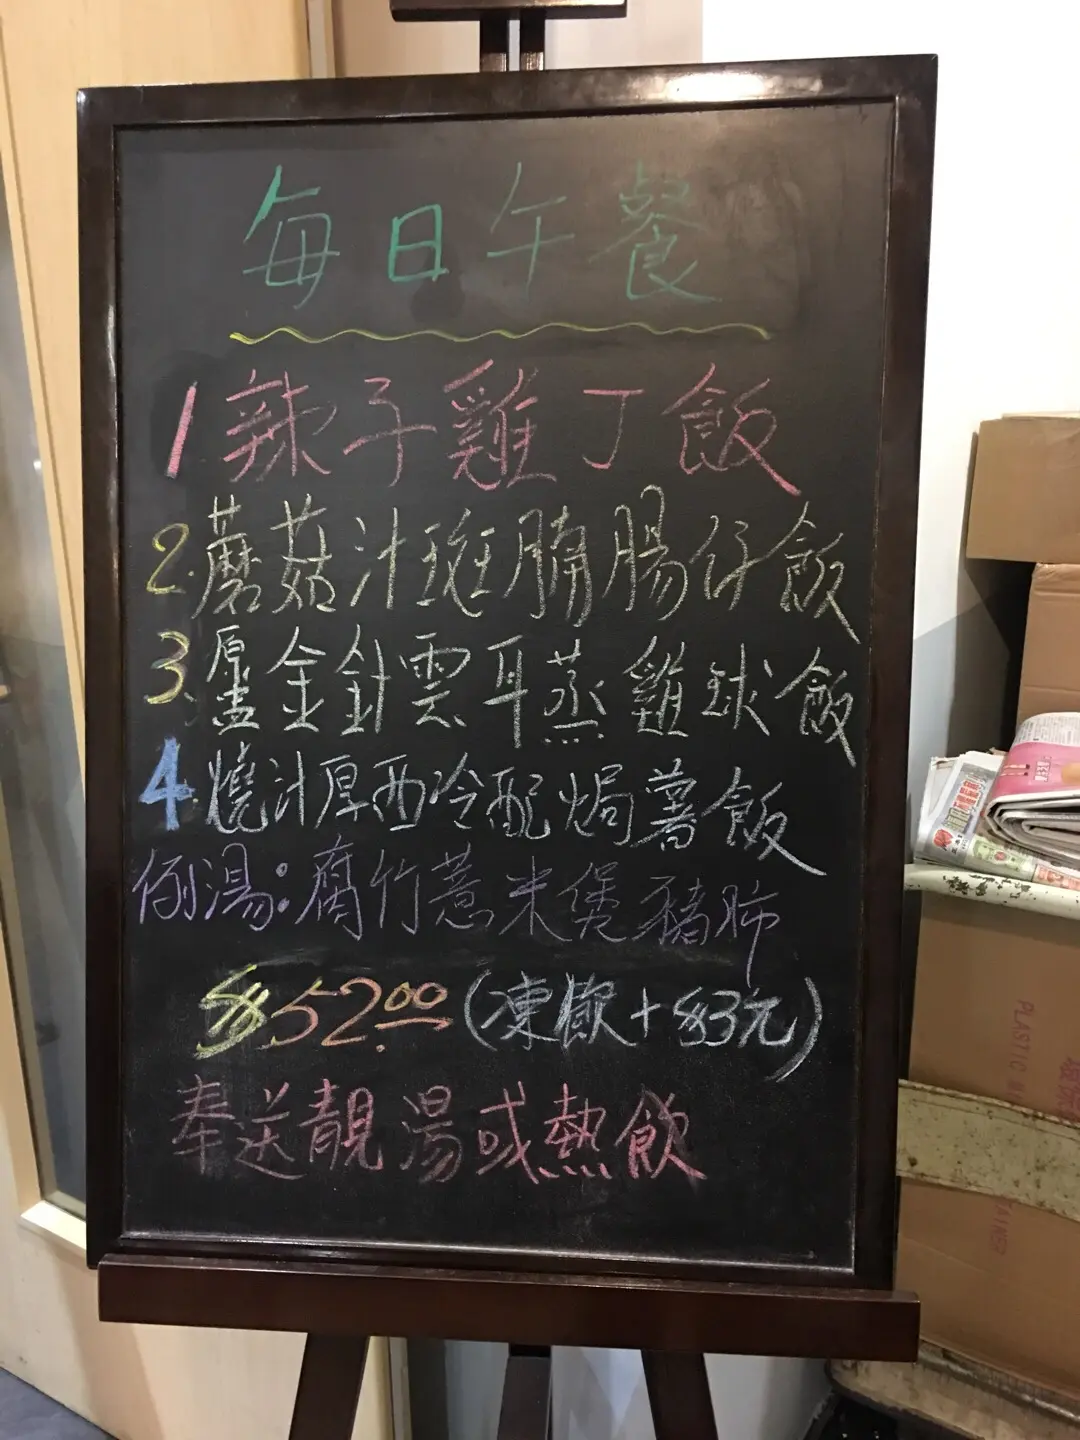 每日午餐
1 辣子雞丁飯
2.蘑菇汁斑腩腸仔飯
3.原盅金針雲耳蒸雞球飯
4.燒汁厚西冷配焗薯飯
例湯:腐竹薏米煲豬肺
$52.00(凍飲+$3元)
奉送靚湯或熱飲
PLASTIC